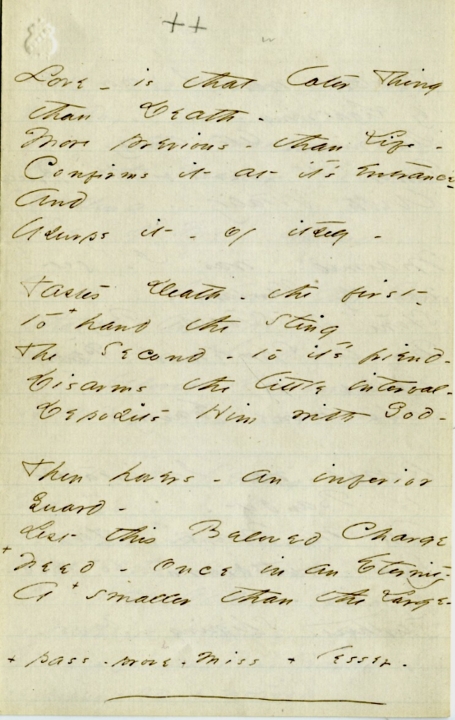 ++
Love - is that later Thing
than Death -
More previous - than Life -
Confirms it at it's entrance -
And
Usurps it - of itself -
Tastes Death - the first -
+
to hand the sting
The Second - to it's friend -
Disarms the little interval -
Deposits Him with God -
Then hovers - an inferior
Guard -
Lest this Beloved Charge
+ Need - once in an Eternity -
A + smaller than the Large -
+ pass - prove + Miss + lesser -